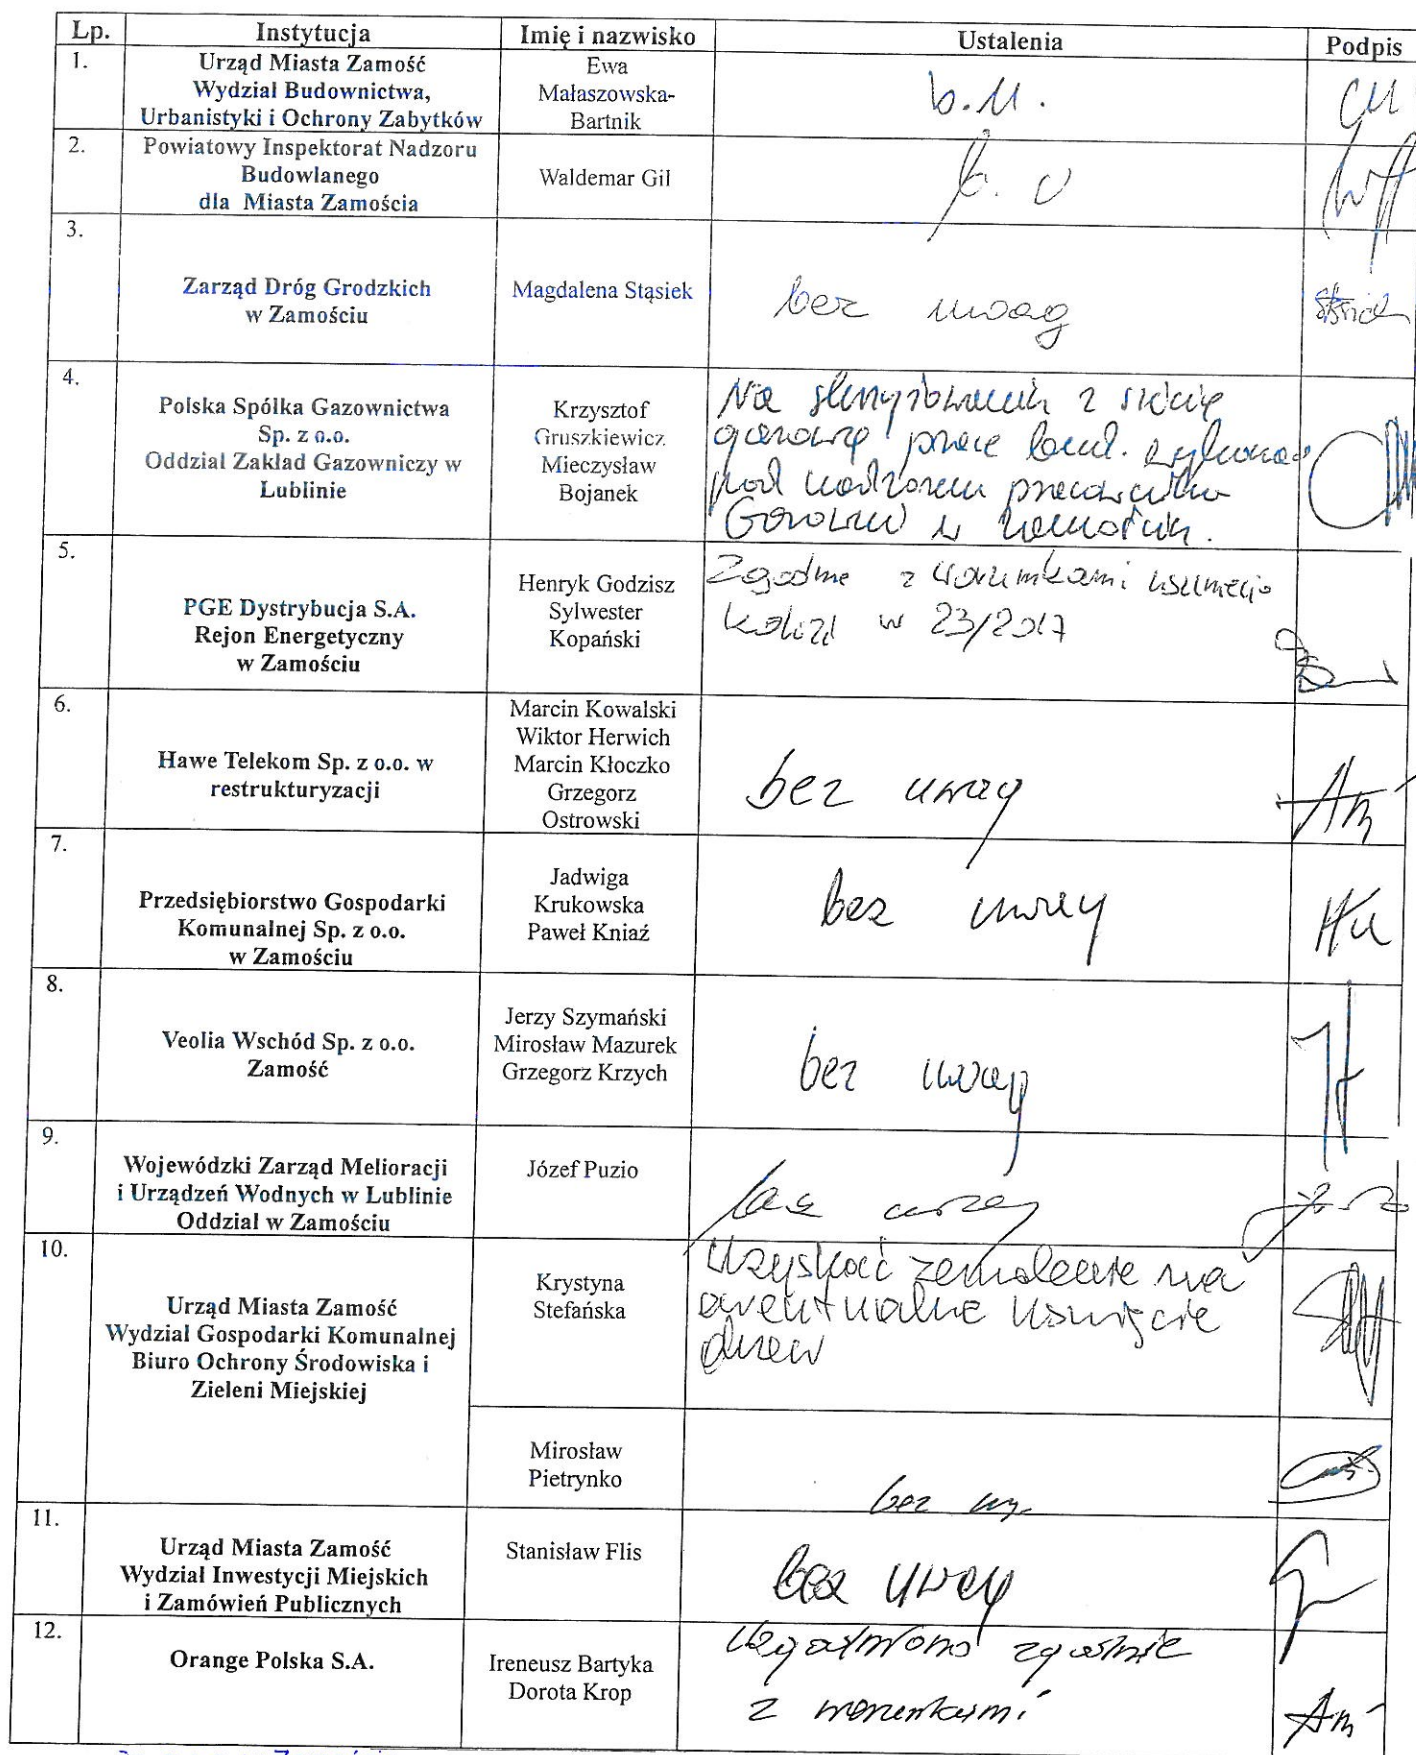 Lp. Instytucja Imię i nazwisko Ustalenia Podpis
1. Urząd Miasta Zamość
Wydział Budownictwa,
Urbanistyki i Ochrony Zabytków
Ewa
Małaszowska-
Bartnik
b.u.
2. Powiatowy Inspektorat Nadzoru
Budowlanego
dla Miasta Zamościa
Waldemar Gil
b. u
3.
Zarząd Dróg Grodzkich
w Zamościu
Magdalena Stąsiek
bez uwag
4.
Polska Spólka Gazownictwa
Sp. z o.o.
Oddział Zakład Gazowniczy w
Lublinie
Krzysztof
Gruszkiewicz
Mieczysław
Bojanek
Na skrzyżowaniu z siecią
gazową prace bud. wykonać
pod nadzorem pracownika
Gazowni w Zamościu.
5.
PGE Dystrybucja S.A.
Rejon Energetyczny
w Zamościu
Henryk Godzisz
Sylwester
Kopański
Zgodnie z warunkami usunięcia
kolizji w 23/2017
6.
Hawe Telekom Sp. z o.o. w
restrukturyzacji
Marcin Kowalski
Wiktor Herwich
Marcin Kłoczko
Grzegorz
Ostrowski
bez uwag
7.
Przedsiębiorstwo Gospodarki
Komunalnej Sp. z o.o.
w Zamościu
Jadwiga
Krukowska
Paweł Kniaź
bez uwag
8.
Veolia Wschód Sp. z o.o.
Zamość
Jerzy Szymański
Mirosław Mazurek
Grzegorz Krzych
bez uwag
9.
Wojewódzki Zarząd Melioracji
i Urządzeń Wodnych w Lublinie
Oddział w Zamościu
Józef Puzio
bez uwag
10.
Urząd Miasta Zamość
Wydział Gospodarki Komunalnej
Biuro Ochrony Środowiska i
Zieleni Miejskiej
Krystyna
Stefańska
Uzyskać zezwolenie na
ewentualne usunięcie
drzew
Mirosław
Pietrynko
bez uw.
11.
Urząd Miasta Zamość
Wydział Inwestycji Miejskich
i Zamówień Publicznych
Stanisław Flis
bez uwag
12.
Orange Polska S.A.
Ireneusz Bartyka
Dorota Krop
Uzgodniono zgodnie
z warunkami